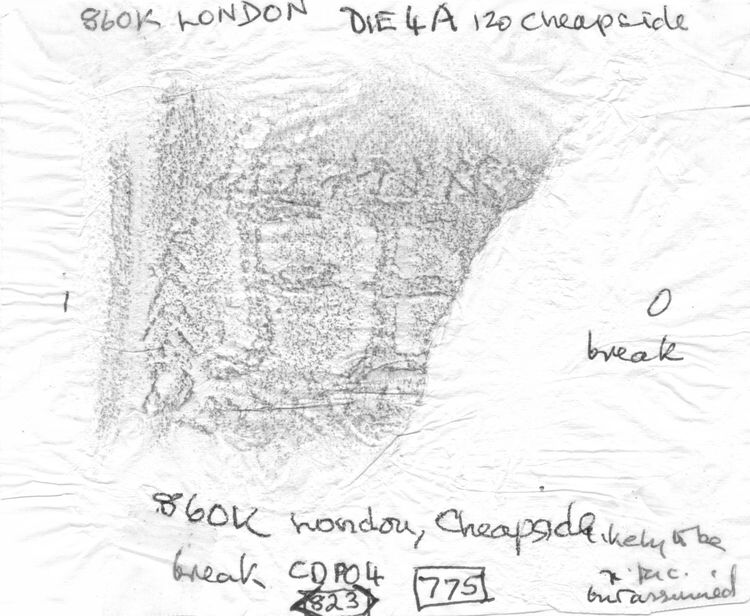 860K LONDON DIE 4A 120 Cheapside
1
0
break
860K London, Cheapside
likely to be
break CDP04 775
823
but assumed